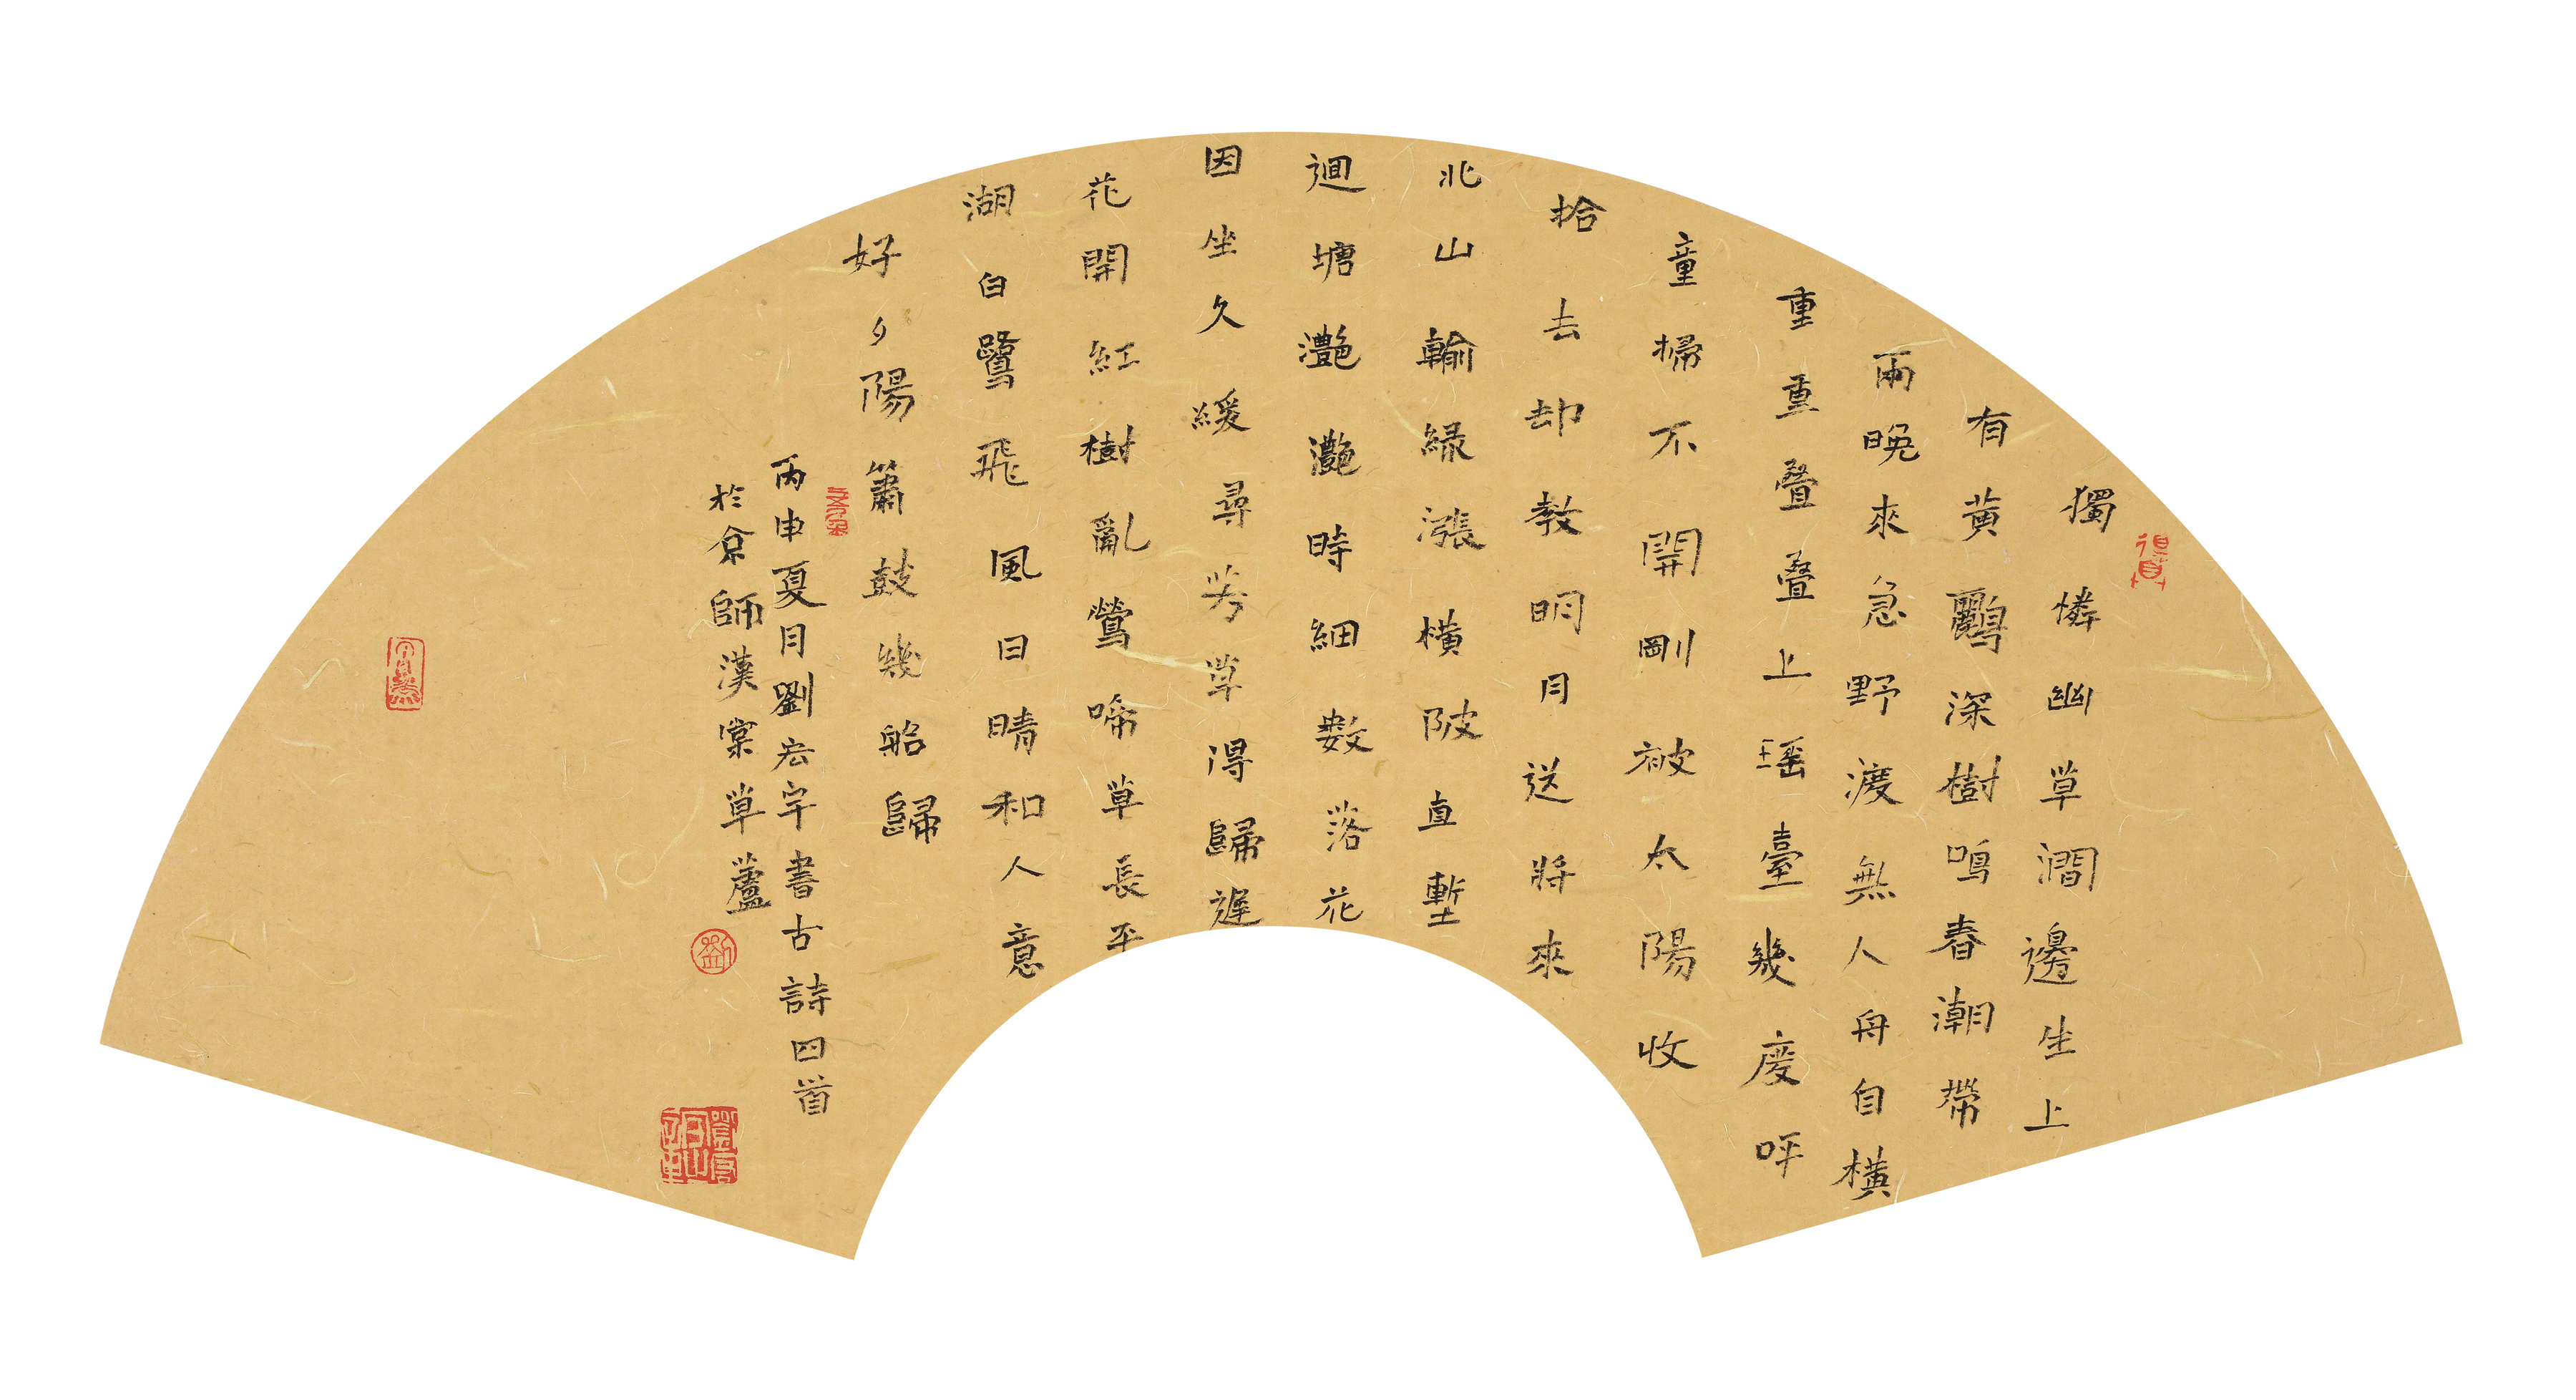 獨憐幽草澗邊生上
有黄鸝深樹鳴春潮帶
雨晚來急野渡無人舟自橫
重重疊疊上瑶臺幾度呼
童掃不開剛被太陽收
拾去却教明月送將來
北山輸緑漲橫陂直塹
迴塘灔灔時細數落花
因坐久緩尋芳草得歸遲
花開紅樹亂鶯啼草長平
湖白鷺飛風日晴和人意
好夕陽簫鼓幾船歸
丙申夏月劉宏宇書古詩四首
於京師漢棠草蘆